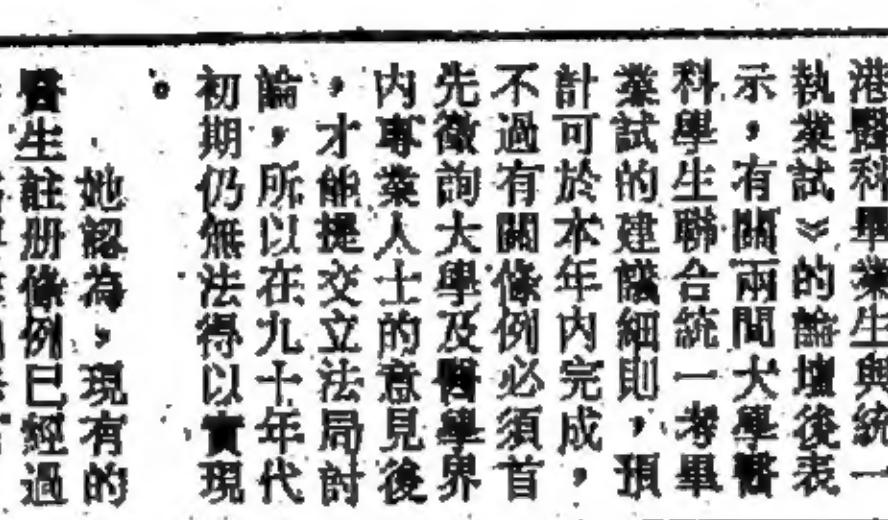 港醫科畢業生與統一
執業試》的論壇後表
示，有關兩間大學醫
科學生聯合統一考畢
業試的建議細則，預
計可於本年內完成，
不過有關條例必須首
先徵詢大學及醫學界
內專業人士的意見後
，才能提交立法局討
論，所以在九十年代
初期仍無法得以實現
。
她認為，現有的
醫生註册條例已經過